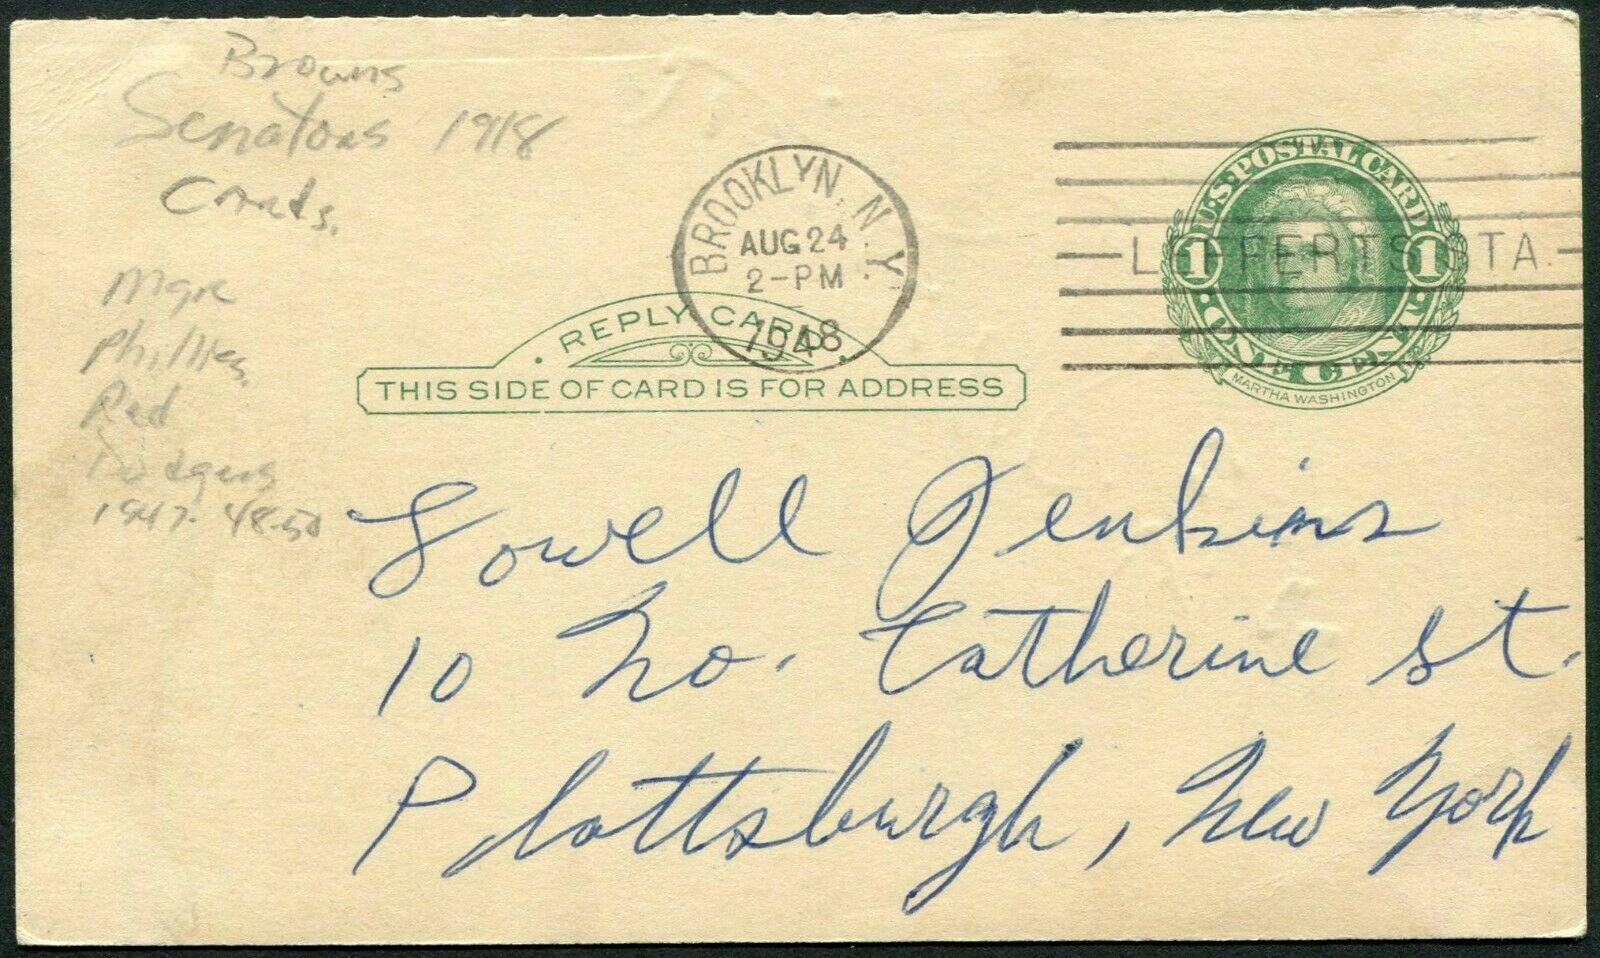 Browns
Senators 1918
Cards.
Mgr
Phillies
Red
Dodgers
1947-48-50
BROOKLYN, N.Y.
AUG 24
2-PM
1948
LEFFERTS STA.
U.S. POSTAL CARD
1 1
ONE CENT
MARTHA WASHINGTON
REPLY CARD
THIS SIDE OF CARD IS FOR ADDRESS
Lowell Jenkins
10 No. Catherine St.
Plattsburgh, New York